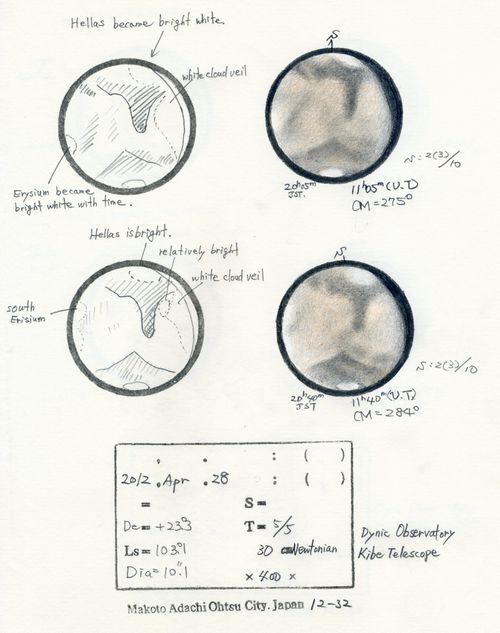 Hellas became bright white.
S
white cloud veil
20h05m
JST.
11h05m (U.T)
CM=275°
S: 2(3)/10
Erysium became
bright white with time.
Hellas is bright.
relatively bright
white cloud veil
south
Erisium
S
20h40m
JST
11h40m (U.T)
CM=284°
S: 2(3)/10
. . : ( )
2012. Apr. 28 : ( )
= S=
De= +23°.3 T= 5/5
Ls= 103°.1 30 cm Newtonian
Dia= 10".1 × 400 ×
Dynic Observatory
Kibe Telescope
Makoto Adachi Ohtsu City. Japan 12-32